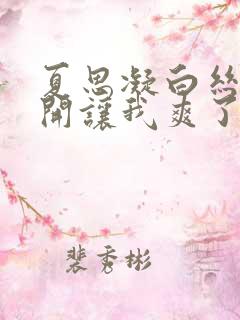 夏思凝白絲
開讓我爽了
裴秀彬